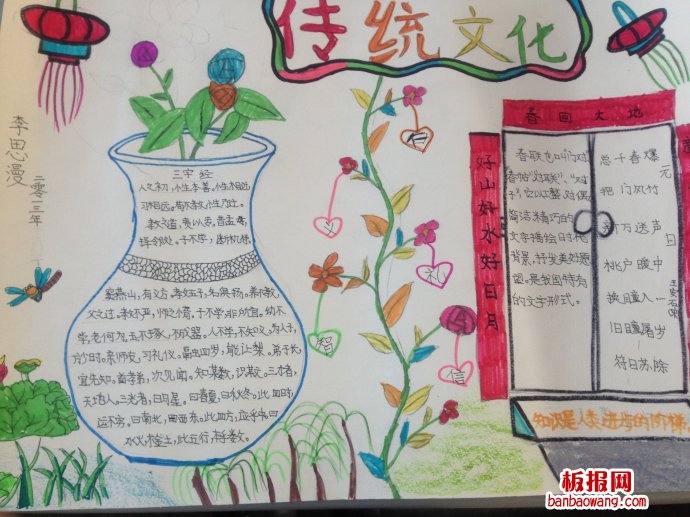 传统文化
李思漫
二零一三年
三字经
人之初,性本善,性相近,
习相远。苟不教,性乃迁。
教之道,贵以专,昔孟母,
择邻处。子不学,断机杼。
窦燕山,有义方,教五子,名俱扬。养不教,
父之过,教不严,师之惰。子不学,非所宜。幼不
学,老何为。玉不琢,不成器。人不学,不知义。为人子,
方少时。亲师友,习礼仪。
能让梨。弟于长,
宜先知。首孝弟,次见闻。知某数,识某文。
三光者,曰月星。曰春夏,曰秋冬。此四时,
运不穷。曰南北,曰西东。此四方,应乎中。曰
水火,木金土,此五行,本乎数。
仁
义
礼
智
信
春回大地
好山好水好日月
春联也叫门对
春帖“对联”,“对
子”,它以工整,对偶
简洁精巧的
文字描绘时代
背景,抒发美好愿
望。是我国特有
的文字形式。
元日
王安石
爆竹声中一岁除
春风送暖入屠苏
千门万户曈曈日
总把新桃换旧符
知识是人类进步的阶梯
板报网
banbaowang.com